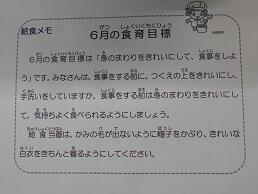 給食メモ
6月の食育目標
6月の食育目標は「身のまわりをきれいにして、食事をしよ
う」です。みなさんは、食事をする前に、つくえの上をきれいにし、
手洗いをしていますか。食事をする前は身のまわりをきれいにし
て、気持ちよく食べられるようにしましょう。
給食当番は、かみの毛が出ないように帽子をかぶり、きれいな
白衣をきちんと着るようにしてください。